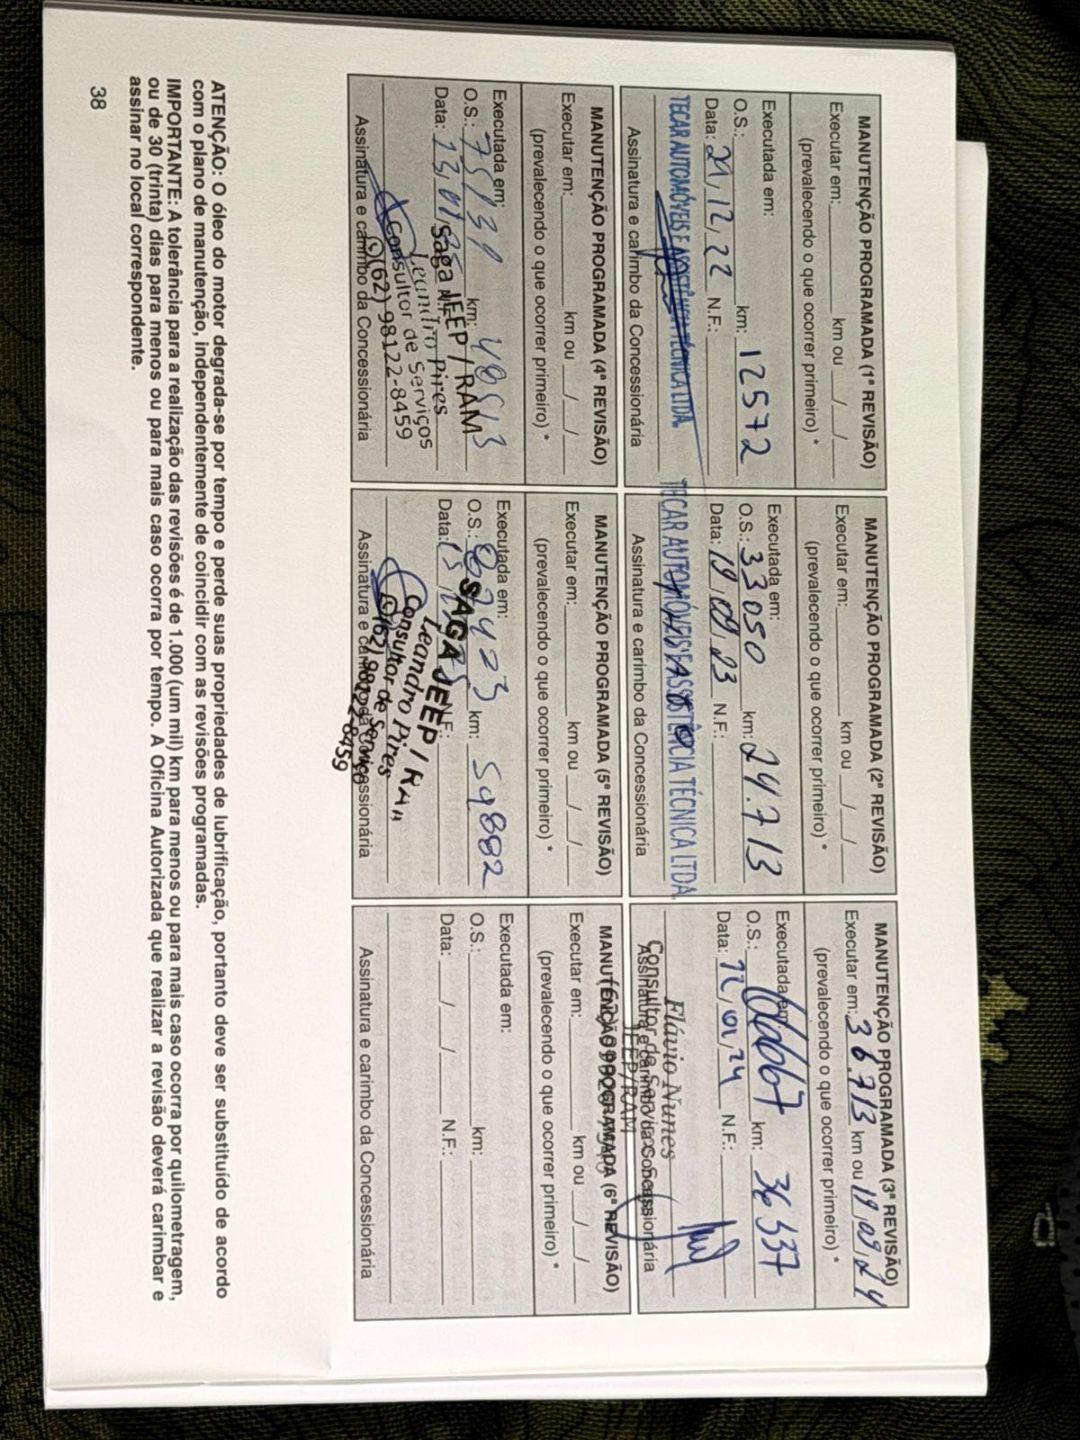 MANUTENÇÃO PROGRAMADA (1ª REVISÃO)
Executar em:______ km ou __/__/__
(prevalecendo o que ocorrer primeiro) *
Executada em:
O.S.:______ km: 12572
Data: 21/12/22 N.F.:______
TECAR AUTOMÓVEIS E ASSISTÊNCIA TÉCNICA LTDA.
Assinatura e carimbo da Concessionária
MANUTENÇÃO PROGRAMADA (2ª REVISÃO)
Executar em:______ km ou __/__/__
(prevalecendo o que ocorrer primeiro) *
Executada em:
O.S.: 33050 km: 24.713
Data: 19/09/23 N.F.:______
TECAR AUTOMÓVEIS E ASSISTÊNCIA TÉCNICA LTDA.
Assinatura e carimbo da Concessionária
MANUTENÇÃO PROGRAMADA (3ª REVISÃO)
Executar em: 36.713 km ou 19/09/24
(prevalecendo o que ocorrer primeiro) *
Executada em:
O.S.: km: 36537
Data: N.F.:______
Flávio Nunes
Consultor de Serviços
JEEP/RAM
Assinatura e carimbo da Concessionária
MANUTENÇÃO PROGRAMADA (4ª REVISÃO)
Executar em:______ km ou __/__/__
(prevalecendo o que ocorrer primeiro) *
Executada em:
O.S.: km:
Data: 13/01/ N.F.:
Saga JEEP / RAM
Leandro Pires
Consultor de Serviços
(62) 98122-8459
Assinatura e carimbo da Concessionária
MANUTENÇÃO PROGRAMADA (5ª REVISÃO)
Executar em:______ km ou __/__/__
(prevalecendo o que ocorrer primeiro) *
Executada em:
O.S.: 82423 km: 59882
Data: N.F.:
SAGA JEEP / RAM
Leandro Pires
Consultor de Serviços
(62) 98122-8459
Assinatura e carimbo da Concessionária
MANUTENÇÃO PROGRAMADA (6ª REVISÃO)
Executar em:______ km ou __/__/__
(prevalecendo o que ocorrer primeiro) *
Executada em:
O.S.:______ km:______
Data: __/__/__ N.F.:______
Assinatura e carimbo da Concessionária
ATENÇÃO: O óleo do motor degrada-se por tempo e perde suas propriedades de lubrificação, portanto deve ser substituído de acordo
com o plano de manutenção, independentemente de coincidir com as revisões programadas.
IMPORTANTE: A tolerância para a realização das revisões é de 1.000 (um mil) km para menos ou para mais caso ocorra por quilometragem,
ou de 30 (trinta) dias para menos ou para mais caso ocorra por tempo. A Oficina Autorizada que realizar a revisão deverá carimbar e
assinar no local correspondente.
38